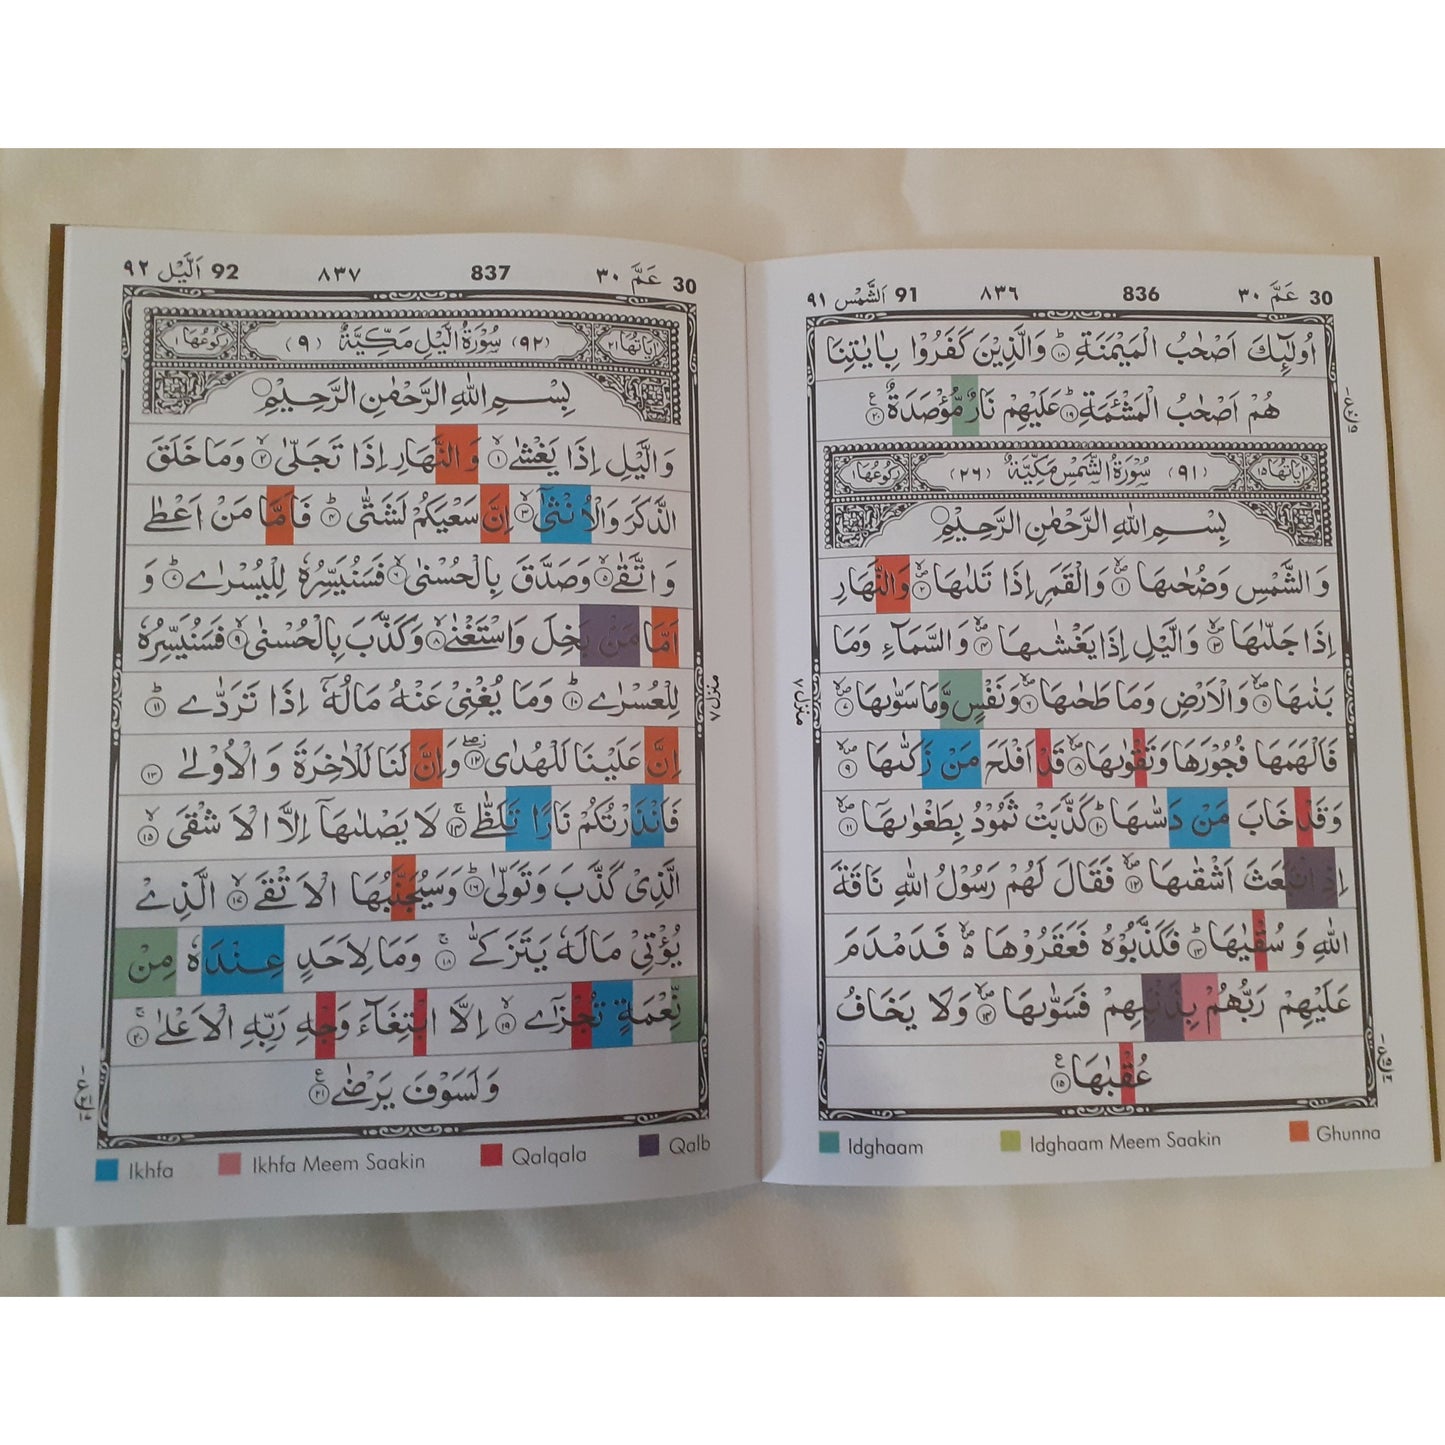 30 عَمَّ ٣٠ 836 ٨٣٦ 91 اَلشَّمْس ٩١
اُولٰٓئِكَ اَصْحٰبُ الْمَيْمَنَةِ ؕ﴿۱۸﴾ وَالَّذِيْنَ كَفَرُوْا بِاٰيٰتِنَا
هُمْ اَصْحٰبُ الْمَشْـَٔمَةِ ؕ﴿۱۹﴾ عَلَيْهِمْ نَارٌ مُّؤْصَدَةٌ ﴿۲۰﴾ ع
اٰيَاتُهَا ١٥ (٩١) سُوْرَةُ الشَّمْسِ مَكِّيَّةٌ (٢٦) رُكُوْعُهَا ١
بِسْمِ اللّٰهِ الرَّحْمٰنِ الرَّحِيْمِ
وَالشَّمْسِ وَضُحٰىهَا ۙ﴿۱﴾ وَالْقَمَرِ اِذَا تَلٰىهَا ۙ﴿۲﴾ وَالنَّهَارِ
اِذَا جَلّٰىهَا ۙ﴿۳﴾ وَالَّيْلِ اِذَا يَغْشٰىهَا ۙ﴿۴﴾ وَالسَّمَآءِ وَمَا
بَنٰىهَا ۙ﴿۵﴾ وَالْاَرْضِ وَمَا طَحٰىهَا ۙ﴿۶﴾ وَنَفْسٍ وَّمَا سَوّٰىهَا ۙ﴿۷﴾
فَاَلْهَمَهَا فُجُوْرَهَا وَتَقْوٰىهَا ۙ﴿۸﴾ قَدْ اَفْلَحَ مَنْ زَكّٰىهَا ۙ﴿۹﴾
وَقَدْ خَابَ مَنْ دَسّٰىهَا ؕ﴿۱۰﴾ كَذَّبَتْ ثَمُوْدُ بِطَغْوٰىهَاۤ ۙ﴿۱۱﴾
اِذِ انْۢبَعَثَ اَشْقٰىهَا ۙ﴿۱۲﴾ فَقَالَ لَهُمْ رَسُوْلُ اللّٰهِ نَاقَةَ
اللّٰهِ وَ سُقْيٰهَا ؕ﴿۱۳﴾ فَكَذَّبُوْهُ فَعَقَرُوْهَا ۙ۬ فَدَمْدَمَ
عَلَيْهِمْ رَبُّهُمْ بِذَنْۢبِهِمْ فَسَوّٰىهَا ۙ﴿۱۴﴾ وَلَا يَخَافُ
عُقْبٰهَا ﴿۱۵﴾ ع
منزل ٧
Idghaam Idghaam Meem Saakin Ghunna
30 عَمَّ ٣٠ 837 ٨٣٧ 92 اَلَّيْل ٩٢
اٰيَاتُهَا ٢١ (٩٢) سُوْرَةُ الَّيْلِ مَكِّيَّةٌ (٩) رُكُوْعُهَا ١
بِسْمِ اللّٰهِ الرَّحْمٰنِ الرَّحِيْمِ
وَالَّيْلِ اِذَا يَغْشٰى ۙ﴿۱﴾ وَالنَّهَارِ اِذَا تَجَلّٰى ۙ﴿۲﴾ وَمَا خَلَقَ
الذَّكَرَ وَالْاُنْثٰۤى ۙ﴿۳﴾ اِنَّ سَعْيَكُمْ لَشَتّٰى ؕ﴿۴﴾ فَاَمَّا مَنْ اَعْطٰى
وَ اتَّقٰى ۙ﴿۵﴾ وَصَدَّقَ بِالْحُسْنٰى ۙ﴿۶﴾ فَسَنُيَسِّرُهٗ لِلْيُسْرٰى ؕ﴿۷﴾ وَ
اَمَّا مَنْۢ بَخِلَ وَاسْتَغْنٰى ۙ﴿۸﴾ وَكَذَّبَ بِالْحُسْنٰى ۙ﴿۹﴾ فَسَنُيَسِّرُهٗ
لِلْعُسْرٰى ؕ﴿۱۰﴾ وَمَا يُغْنِىْ عَنْهُ مَالُهٗۤ اِذَا تَرَدّٰى ؕ﴿۱۱﴾
اِنَّ عَلَيْنَا لَلْهُدٰى ۖ﴿۱۲﴾ وَاِنَّ لَنَا لَلْاٰخِرَةَ وَ الْاُوْلٰى ﴿۱۳﴾
فَاَنْذَرْتُكُمْ نَارًا تَلَظّٰى ۚ﴿۱۴﴾ لَا يَصْلٰىهَاۤ اِلَّا الْاَشْقَى ۙ﴿۱۵﴾
الَّذِىْ كَذَّبَ وَتَوَلّٰى ؕ﴿۱۶﴾ وَسَيُجَنَّبُهَا الْاَتْقَى ۙ﴿۱۷﴾ الَّذِىْ
يُؤْتِىْ مَالَهٗ يَتَزَكّٰى ۚ﴿۱۸﴾ وَمَا لِاَحَدٍ عِنْدَهٗ مِنْ
نِّعْمَةٍ تُجْزٰٓى ۙ﴿۱۹﴾ اِلَّا ابْتِغَآءَ وَجْهِ رَبِّهِ الْاَعْلٰى ۚ﴿۲۰﴾
وَلَسَوْفَ يَرْضٰى ﴿۲۱﴾ ع
منزل ٧
Ikhfa Ikhfa Meem Saakin Qalqala Qalb